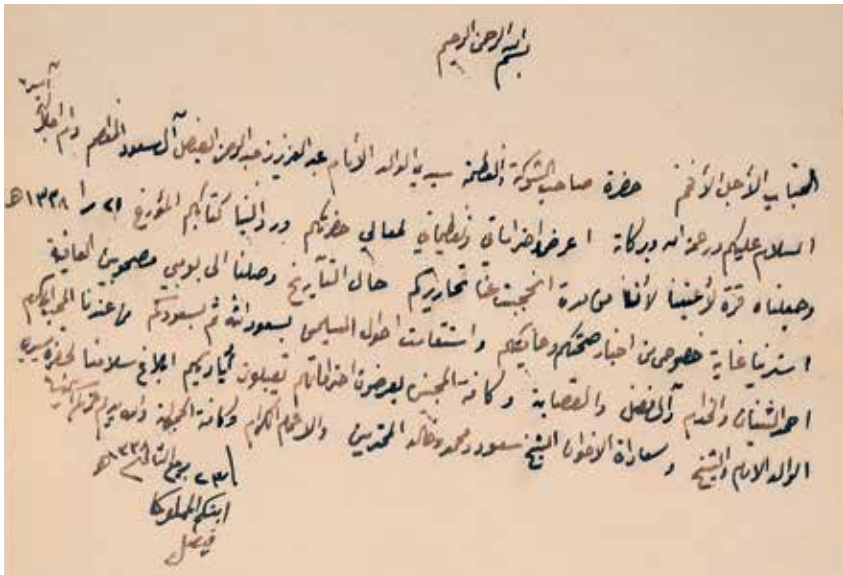 بسم الله الرحمن الرحيم
الجناب الأجل الأفخم حضرة صاحب الشوكة والعظمة سيدي الوالد الأمام عبد العزيز بن عبد الرحمن الفيصل آل سعود المعظم دام
السلام عليكم ورحمة الله وبركاته اعرض احتراماتي وتعظيماتي لمعالي حضرتكم ورد الينا كتابكم المؤرخ ٢١ را ١٣٣٨هـ
وجعلناه قرة لأعيننا لأننا من مدة انحجبت عنا تحاريركم حال التأريخ وصلنا الى بومبي مصحوبين العافية
استرنا غاية خصوص من اخبار صحتكم وعافيتكم واستقامت احوال المسلمين بسعود الله ثم بسعودكم من عندنا
احمد الثنيان والخدام والقصابة وكافة يعرضون احتراماتهم يقبلون أياديكم ابلاغ سلامنا لحضرة سيدي
الوالد الامام والشيخ وسعادة الاخوان الشيخ سعود ومحمد وخالد المحترمين والاعمام الكرام وكافة
٢٣ ربيع الثاني ١٣٣٨هـ
ابنكم المملوك
فيصل